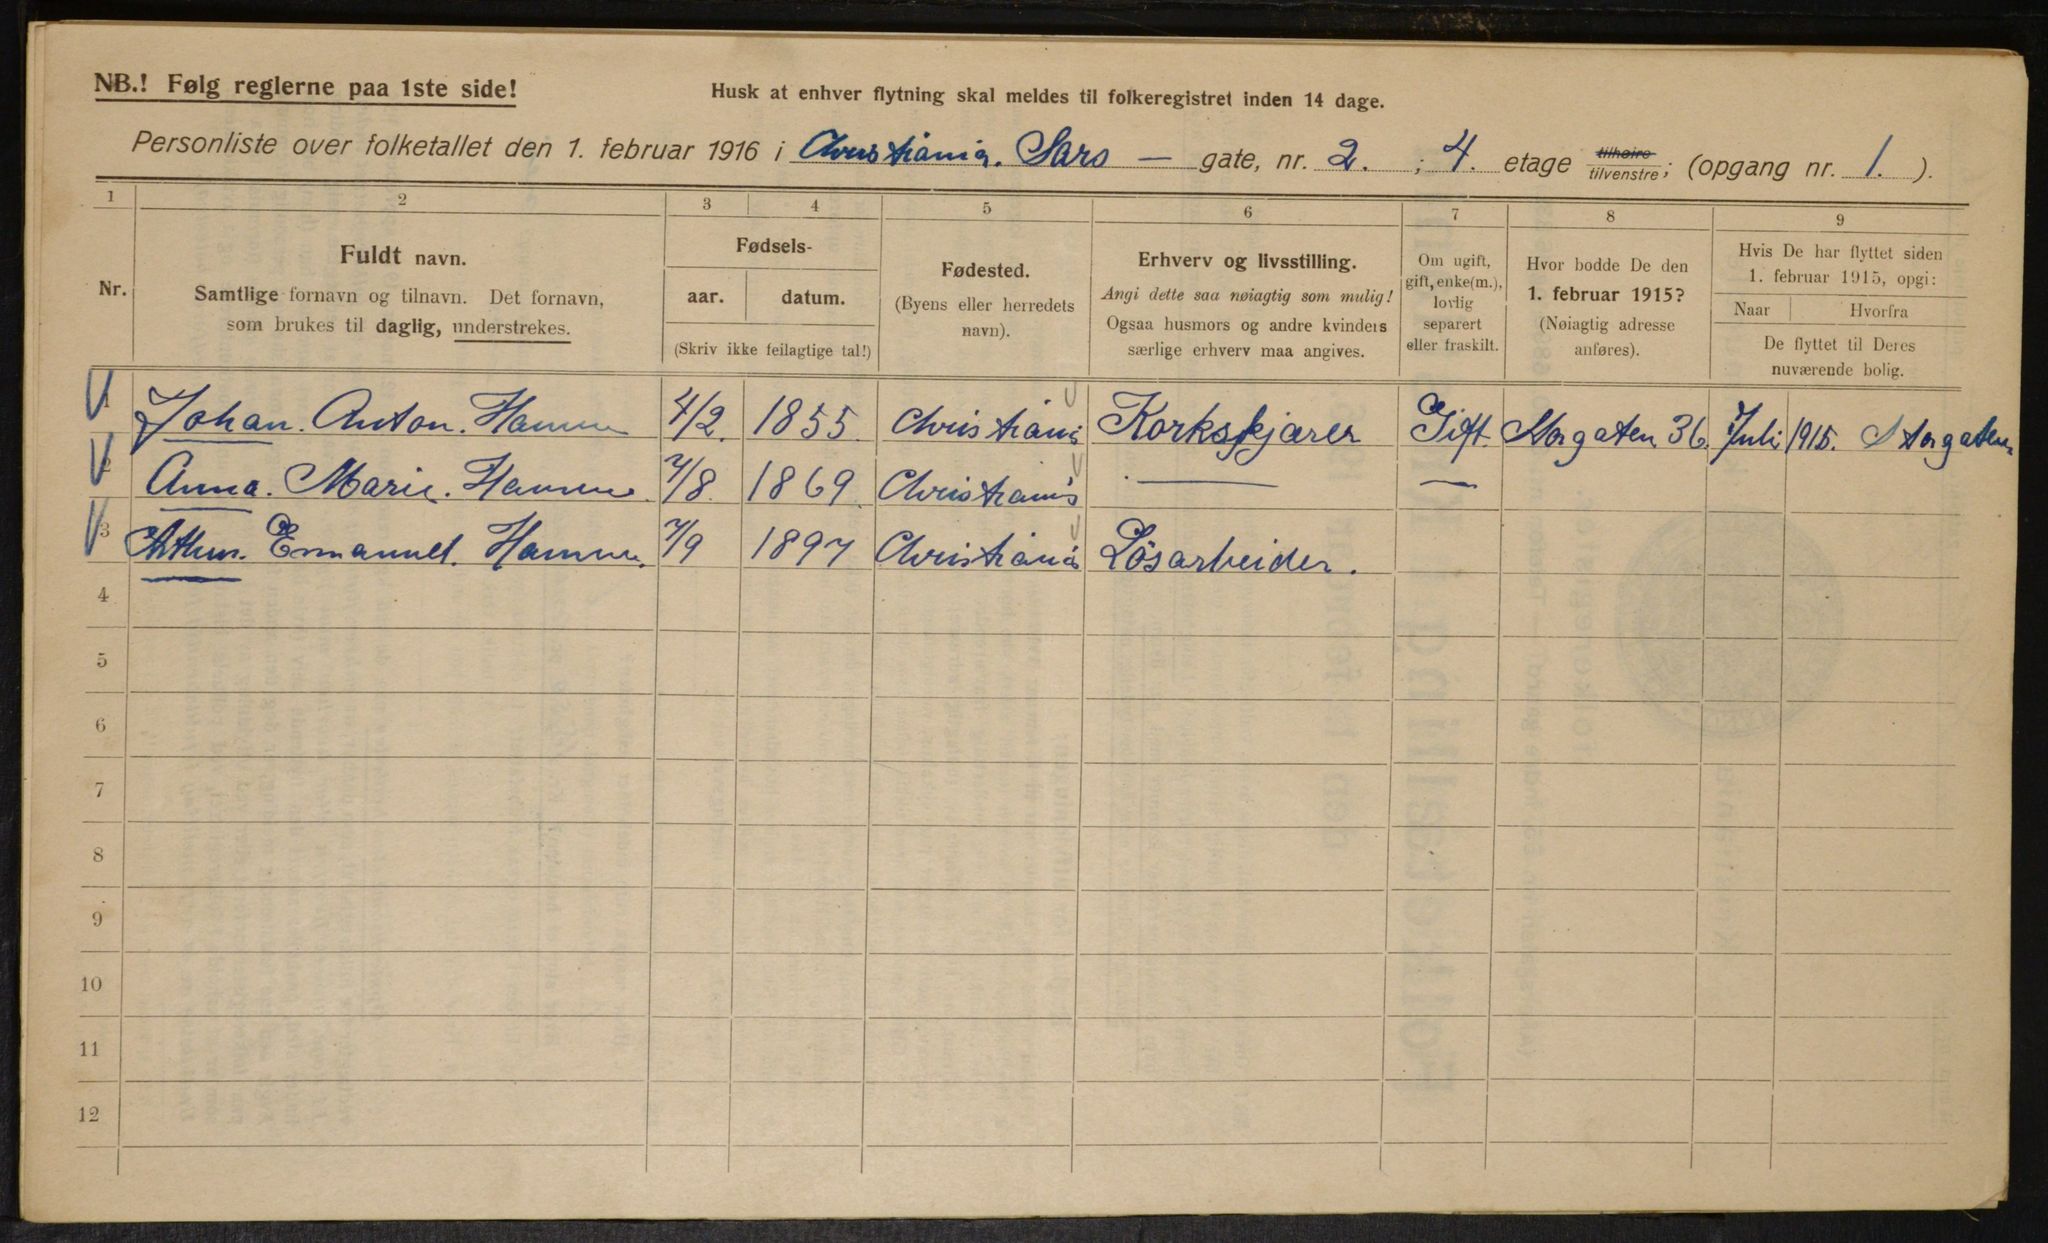 NB.! Følg reglerne paa 1ste side!
Husk at enhver flytning skal meldes til folkeregistret inden 14 dage.
Personliste over folketallet den 1. februar 1916 i Christiania. Sars — gate, nr. 2. ; 4. etage tilhøire tilvenstre; (opgang nr. 1. ).
1 2 3 4 5 6 7 8 9
Nr.
Fuldt navn.
Samtlige fornavn og tilnavn. Det fornavn,
som brukes til daglig, understrekes.
Fødsels-
aar. datum.
(Skriv ikke feilagtige tal!)
Fødested.
(Byens eller herredets
navn).
Erhverv og livsstilling.
Angi dette saa nøiagtig som mulig!
Ogsaa husmors og andre kvinders
særlige erhverv maa angives.
Om ugift,
gift, enke(m.),
lovlig
separert
eller fraskilt.
Hvor bodde De den
1. februar 1915?
(Nøiagtig adresse
anføres).
Hvis De har flyttet siden
1. februar 1915, opgi:
Naar Hvorfra
De flyttet til Deres
nuværende bolig.
1 Johan. Anton. Hansen 4/2. 1855. Christiania Korkskjærer Gift. Storgaten 36. Juli 1915. Storgaten
2 Anna. Marie. Hansen. 7/8. 1869. Christiania — —
3 Arthur. Emanuel. Hansen. 7/9 1897 Christiania Løsarbeider.
4
5
6
7
8
9
10
11
12